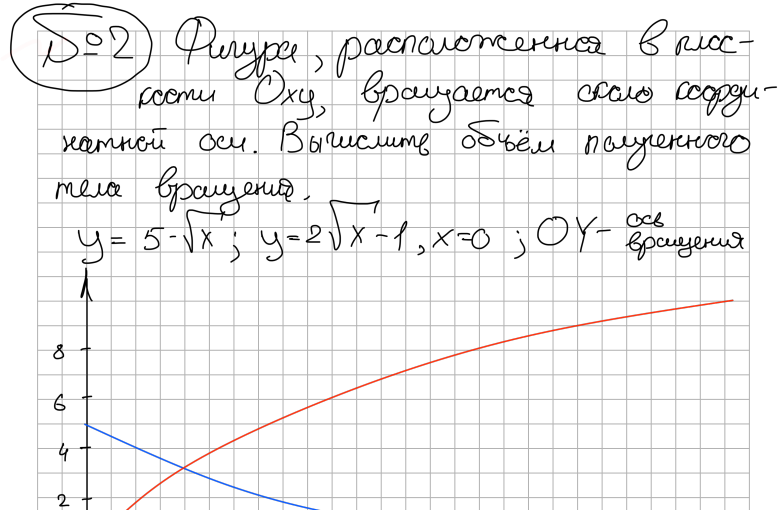 №2 Фигура, расположенная в плос-
кости Oxy, вращается около коорди-
натной оси. Вычислить объём полученного
тела вращения.
y = 5-√x ; y=2√x-1, x=0 ; OY- ось вращения
8
6
4
2